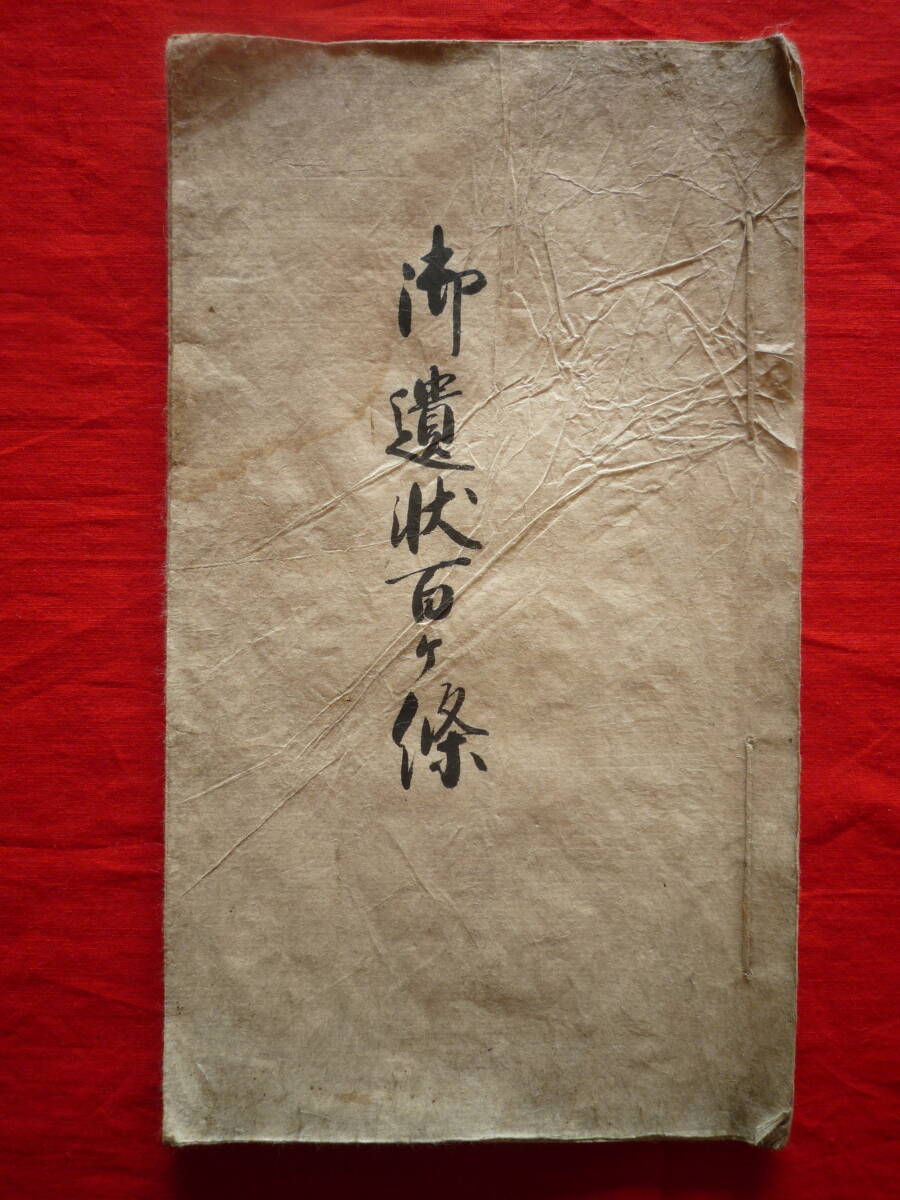 御遺状百ケ條